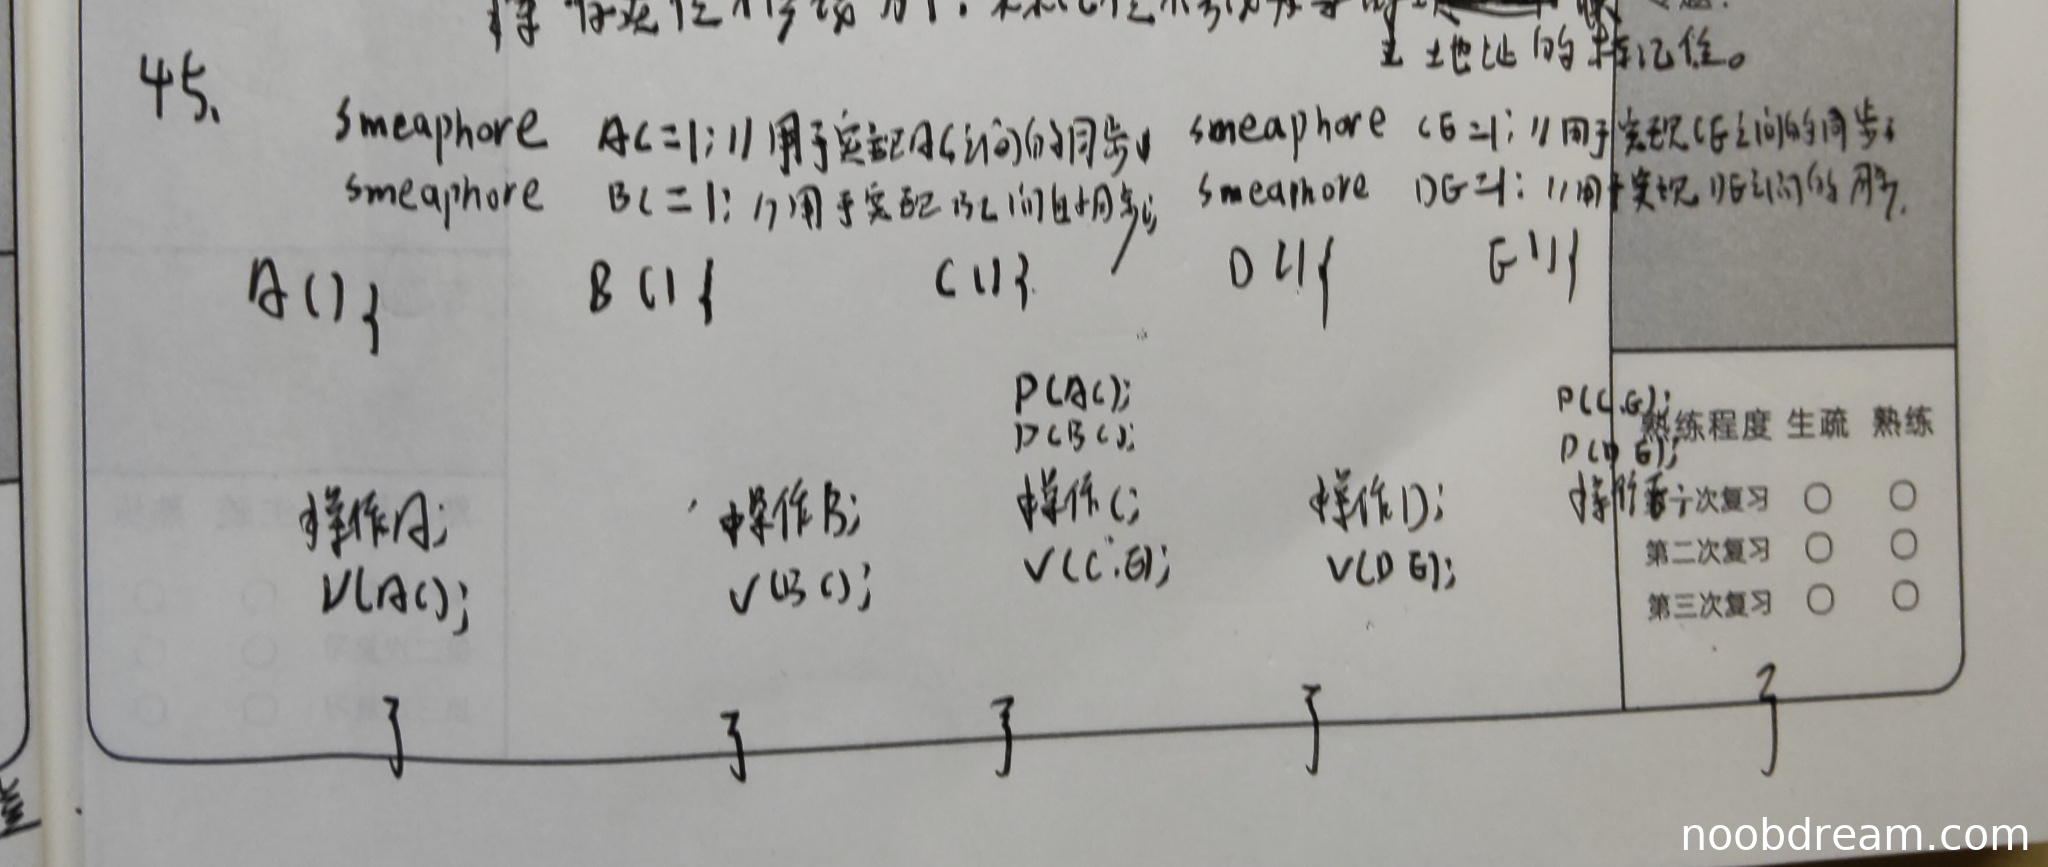 土地址的标记位。
45.
smeaphore AC=1; //用于实现AC之间的同步; smeaphore CE=1; //用于实现CE之间的同步;
smeaphore BC=1; //用于实现BC之间的同步; smeaphore DE=1; //用于实现DE之间的同步.
A(){ B(){ C(){ D(){ E(){
P(AC); P(C.E);
P(BC); P(D E);
熟练程度 生疏 熟练
操作A; 操作B; 操作C; 操作D; 操作E;
第一次复习
V(AC); V(BC); V(C.E); V(D E);
第二次复习
第三次复习
} } } } }
noobdream.com